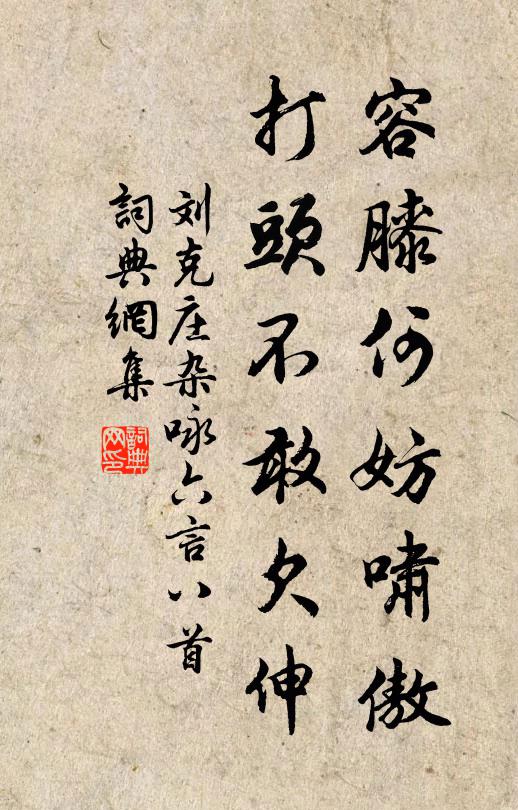 容膝何妨啸傲
打頭不敢欠伸
刘克庄杂咏六言八首
詞典網集
詞典网印